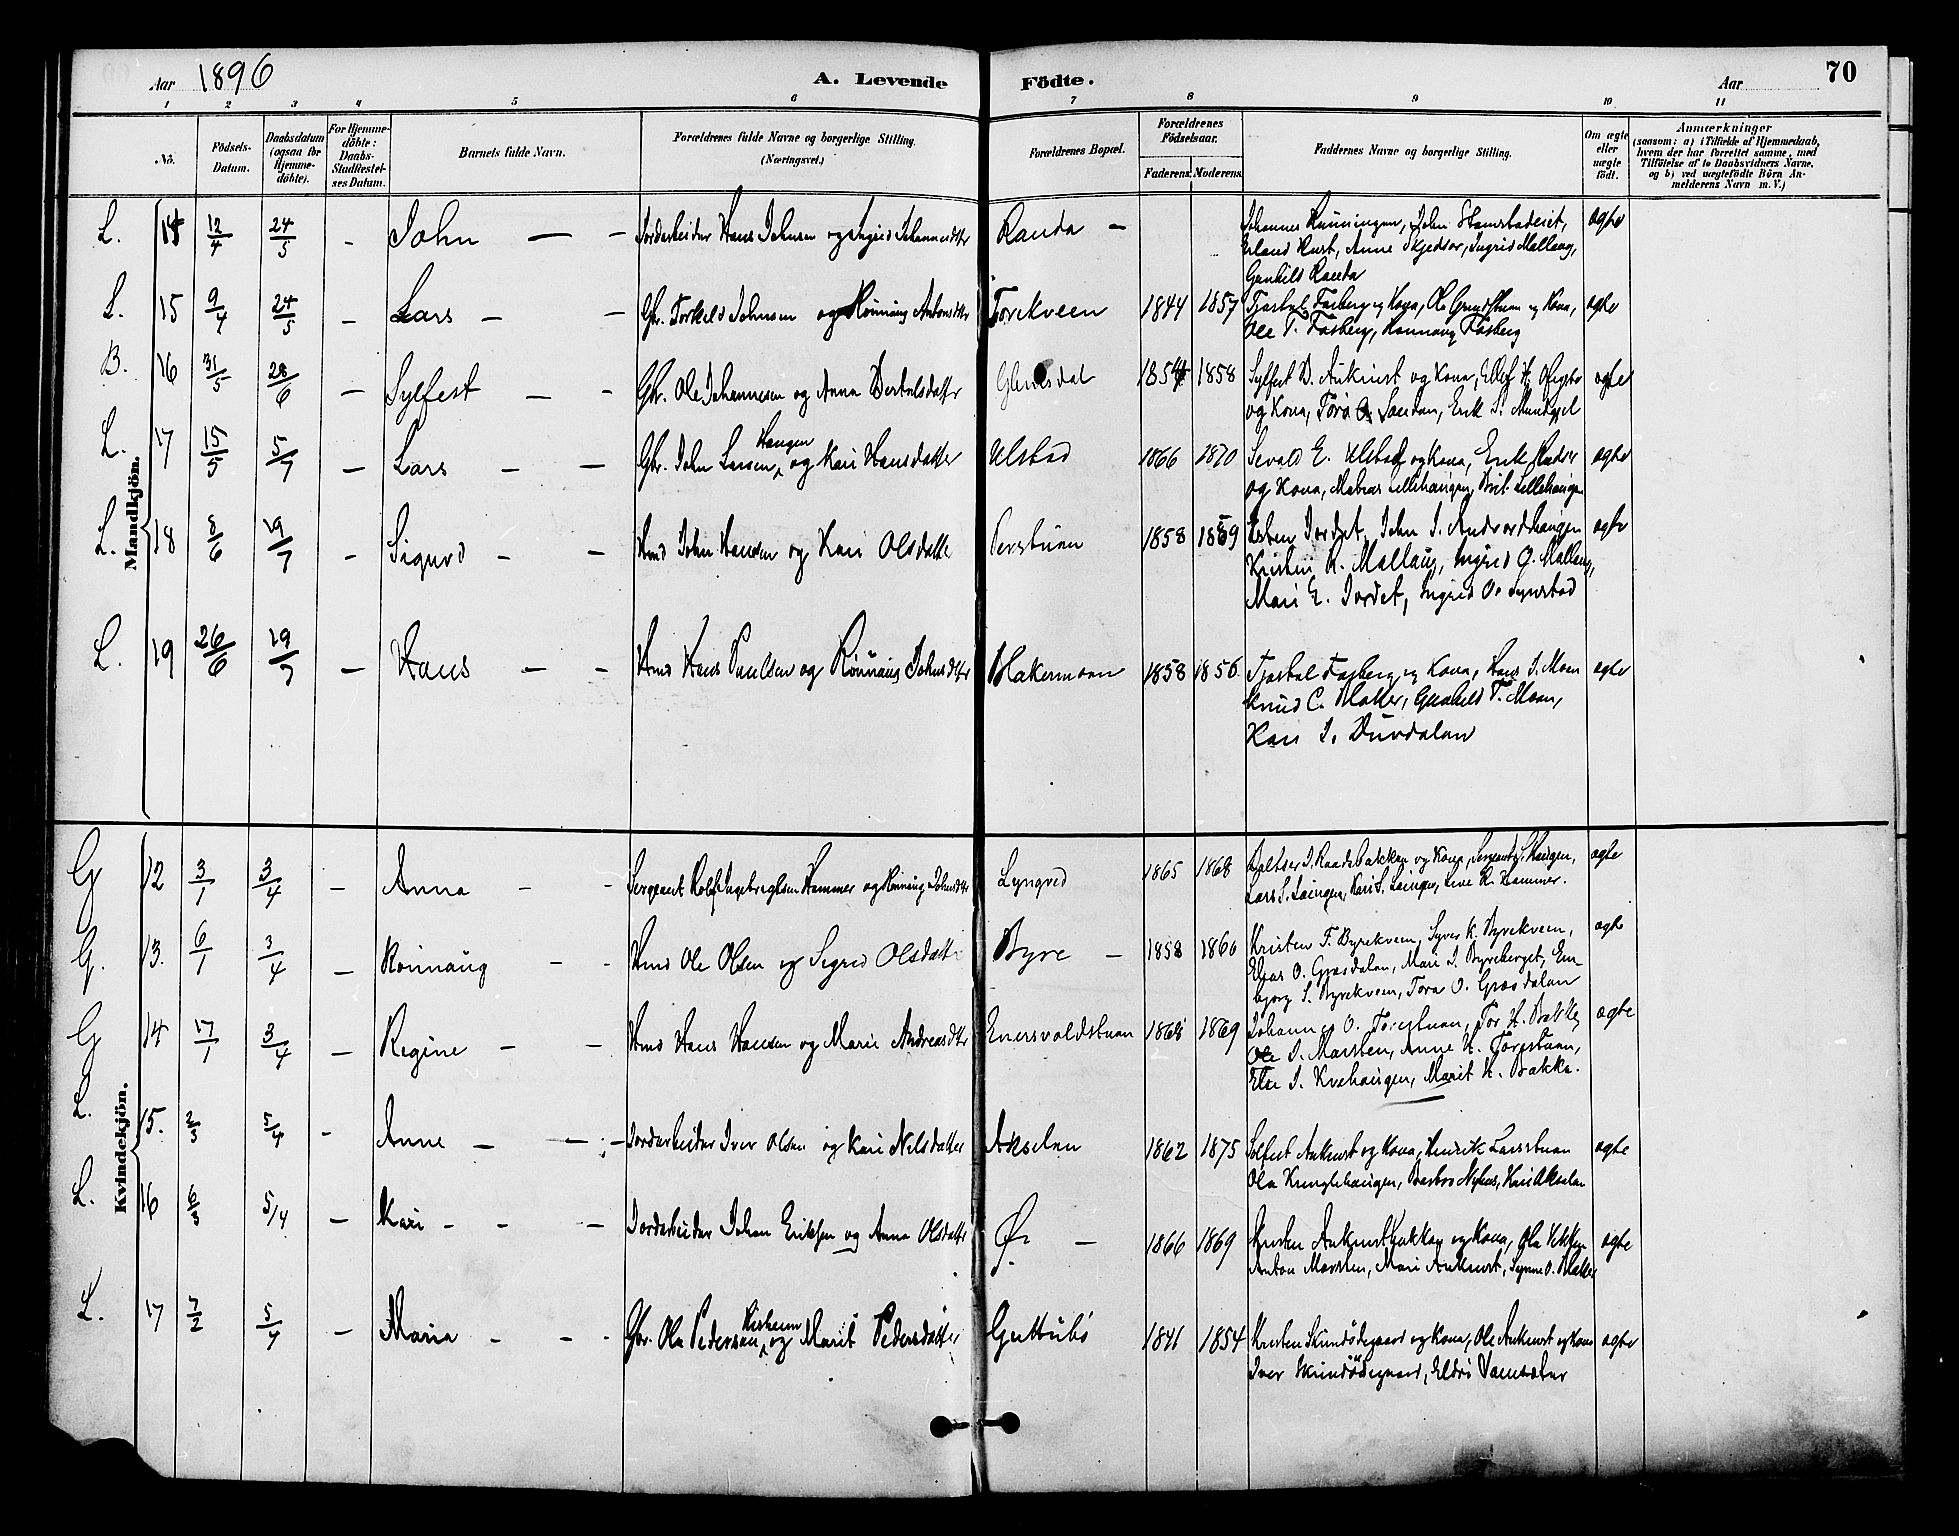 Aar 1896 A. Levende Födte. Aar 70
1 2 3 4 5 6 7 8 9 10 11
No. Födsels-Datum. Daabsdatum (ogsaa for Hjemmedöbte). For Hjemmedöbte: Daabs-Stadfæstelses Datum. Barnets fulde Navn. Forældrenes fulde Navne og borgerlige Stilling. (Næringsvei.) Forældrenes Bopæl. Forældrenes Födselsaar. Faderens Moderens. Faddernes Navne og borgerlige Stilling. Om ægte eller uægte födt. Anmærkninger (saasom: a) i Tilfælde af Hjemmedaab, hvem der har forrettet samme, med Tilföielse af to Daabsvidners Navne, og b) ved uægtefödte Börn Anmelderens Navn m. V.)
Mandkjön.
L. 14 12/4 24/5 - John - - Jordarbeider Hans Johnsen og Ingrid Johannesdtr Randa - Johannes Runningen, John Hamstadreiet, ægte
Erland Kust, Anne Skjedsor, Ingrid Mallaug,
Gunhild Randa
L. 15 9/4 24/5 - Lars - - Gbr. Torkild Johnsen og Rönnaug Antonsdtr Torekveen 1844 1857 Tjostul Fosberg og Kona, Ole Grundstuen og Kona, ægte
Ole T. Fosberg, Rønnaug Fosberg
B. 16 31/5 28/6 - Sylfest - - Gbr. Ole Johannesen og Anna Bertelsdatter 1854 1858 Sylfest D. Aukrust og Kona, Ellef H. ægte
og Kona, Tora Sandan, Erik S.
L. 17 15/5 5/7 - Lars - - Gbr. John Larsen Haugen og Kari Hansdatter Ulstad 1866 1870 Sevald E. Ulstad og Kona, Erik ægte
og Kona, Mathias Lillehaugen, Brit Lillehaugen
L. 18 8/6 19/7 - Sigurd - - Hmd John Hansen og Kari Olsdatter Perstuen 1858 1859 Esten Jordet, John S. Andvordhaugen ægte
Kristen R. Mallaug, Ingrid O. Mallaug,
Mari E. Jordet, Ingrid O. Synstad
L. 19 26/6 19/7 - Hans - - Hmd Hans Paulsen og Rönnaug Johnsdtr Blakermoen 1858 1856 Tjostul Fosberg og Kona, Hans J. Moen ægte
Knud C. Blaker, Gunhild T. Moen,
Kari J. Duvdalen
Kvindekjön.
G 12 3/1 3/4 - Anna - - Sergeant Rolf Ingebregtsen Hammer og Rönnaug Johnsdtr Lyngved 1865 1868 Baltser J. Raadsbakken og Kona, Sergeant S. Haugen, ægte
Lars S. Loingen, Kari S. Loingen, Live R. Hammer.
G. 13. 6/1 3/4 - Rönnaug - - Hmd Ole Olsen og Sigrid Olsdatter Byre - 1858 1860 Kristen T. Byrekveen, Syver K. Byrekveen, ægte
Eljas O. Grøsdalen, Mari I. Byreberget, Em-
bjorg S. Byrekveen, Tora O. Grøsdalen
G 14 17/1 3/4 - Regine - - Hmd Hans Hansen og Marie Andreasdtr Enersvoldstuen 1868 1869 Johannes O. Torestuen, Tor H. Bakke, ægte
Ole J. Marsten, Anne H. Torestuen,
Else J. Kvehaugen, Marit H. Bakke.
L. 15. 2/3 5/4 - Anne - - Jordarbeider Iver Olsen og Kari Nilsdatter Akselen 1862 1875 Solfest Aukrust og Kona, Henrik Larsstuen ægte
Ola Kringlehaugen, Barbro Nyhus, Kari Akselen
L. 16 6/3 5/4 - Kari - - Jordarbeider Johan Eriksen og Anna Olsdatter Ø. - 1866 1869 Kristen Aukrustbakken og Kona, Ola Vekken ægte
Anton Marsten, Mari Aukrust, Synne O. Blaker
L. 17 7/2 5/4 - Maria - - Gbr. Ola Pedersen Risheim og Marit Pedersdatter Guttubö 1841 1854 Kristen Skundödegaard og Kona, Ole Aukrust og Kona ægte
Iver Skundödegaard, Eldri